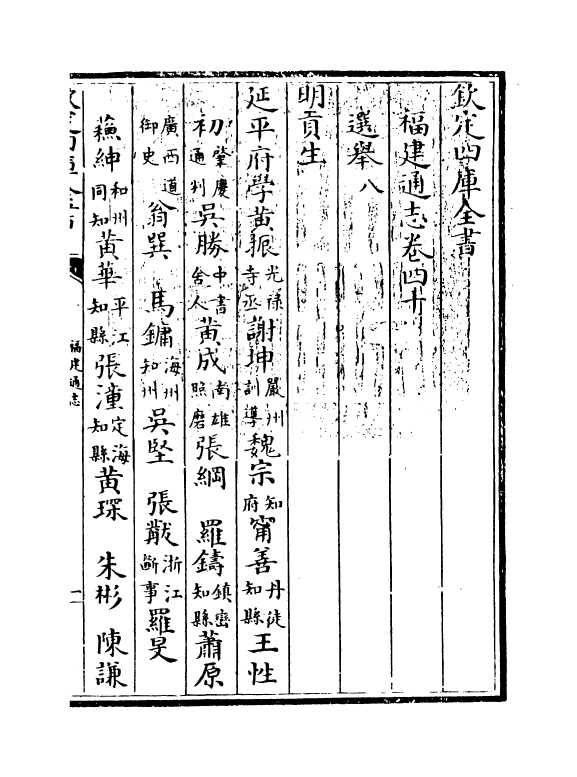 欽定四庫全書
福建通志卷四十
選舉八
明貢生
延平府學黃賑光祿寺丞謝坤嚴州訓導魏宗知府甯善丹徒知縣王性
初肇慶通判吳勝中書舍人黃成南雄照磨張綱 羅鑄鎮巒知縣蕭原
廣西道御史翁巽 馬鏞海州知州吳堅 張黻浙江斷事羅旻
蘓紳和州同知黃華平江知縣張潼定海知縣黃琛 朱彬 陳謙
福建通志
一